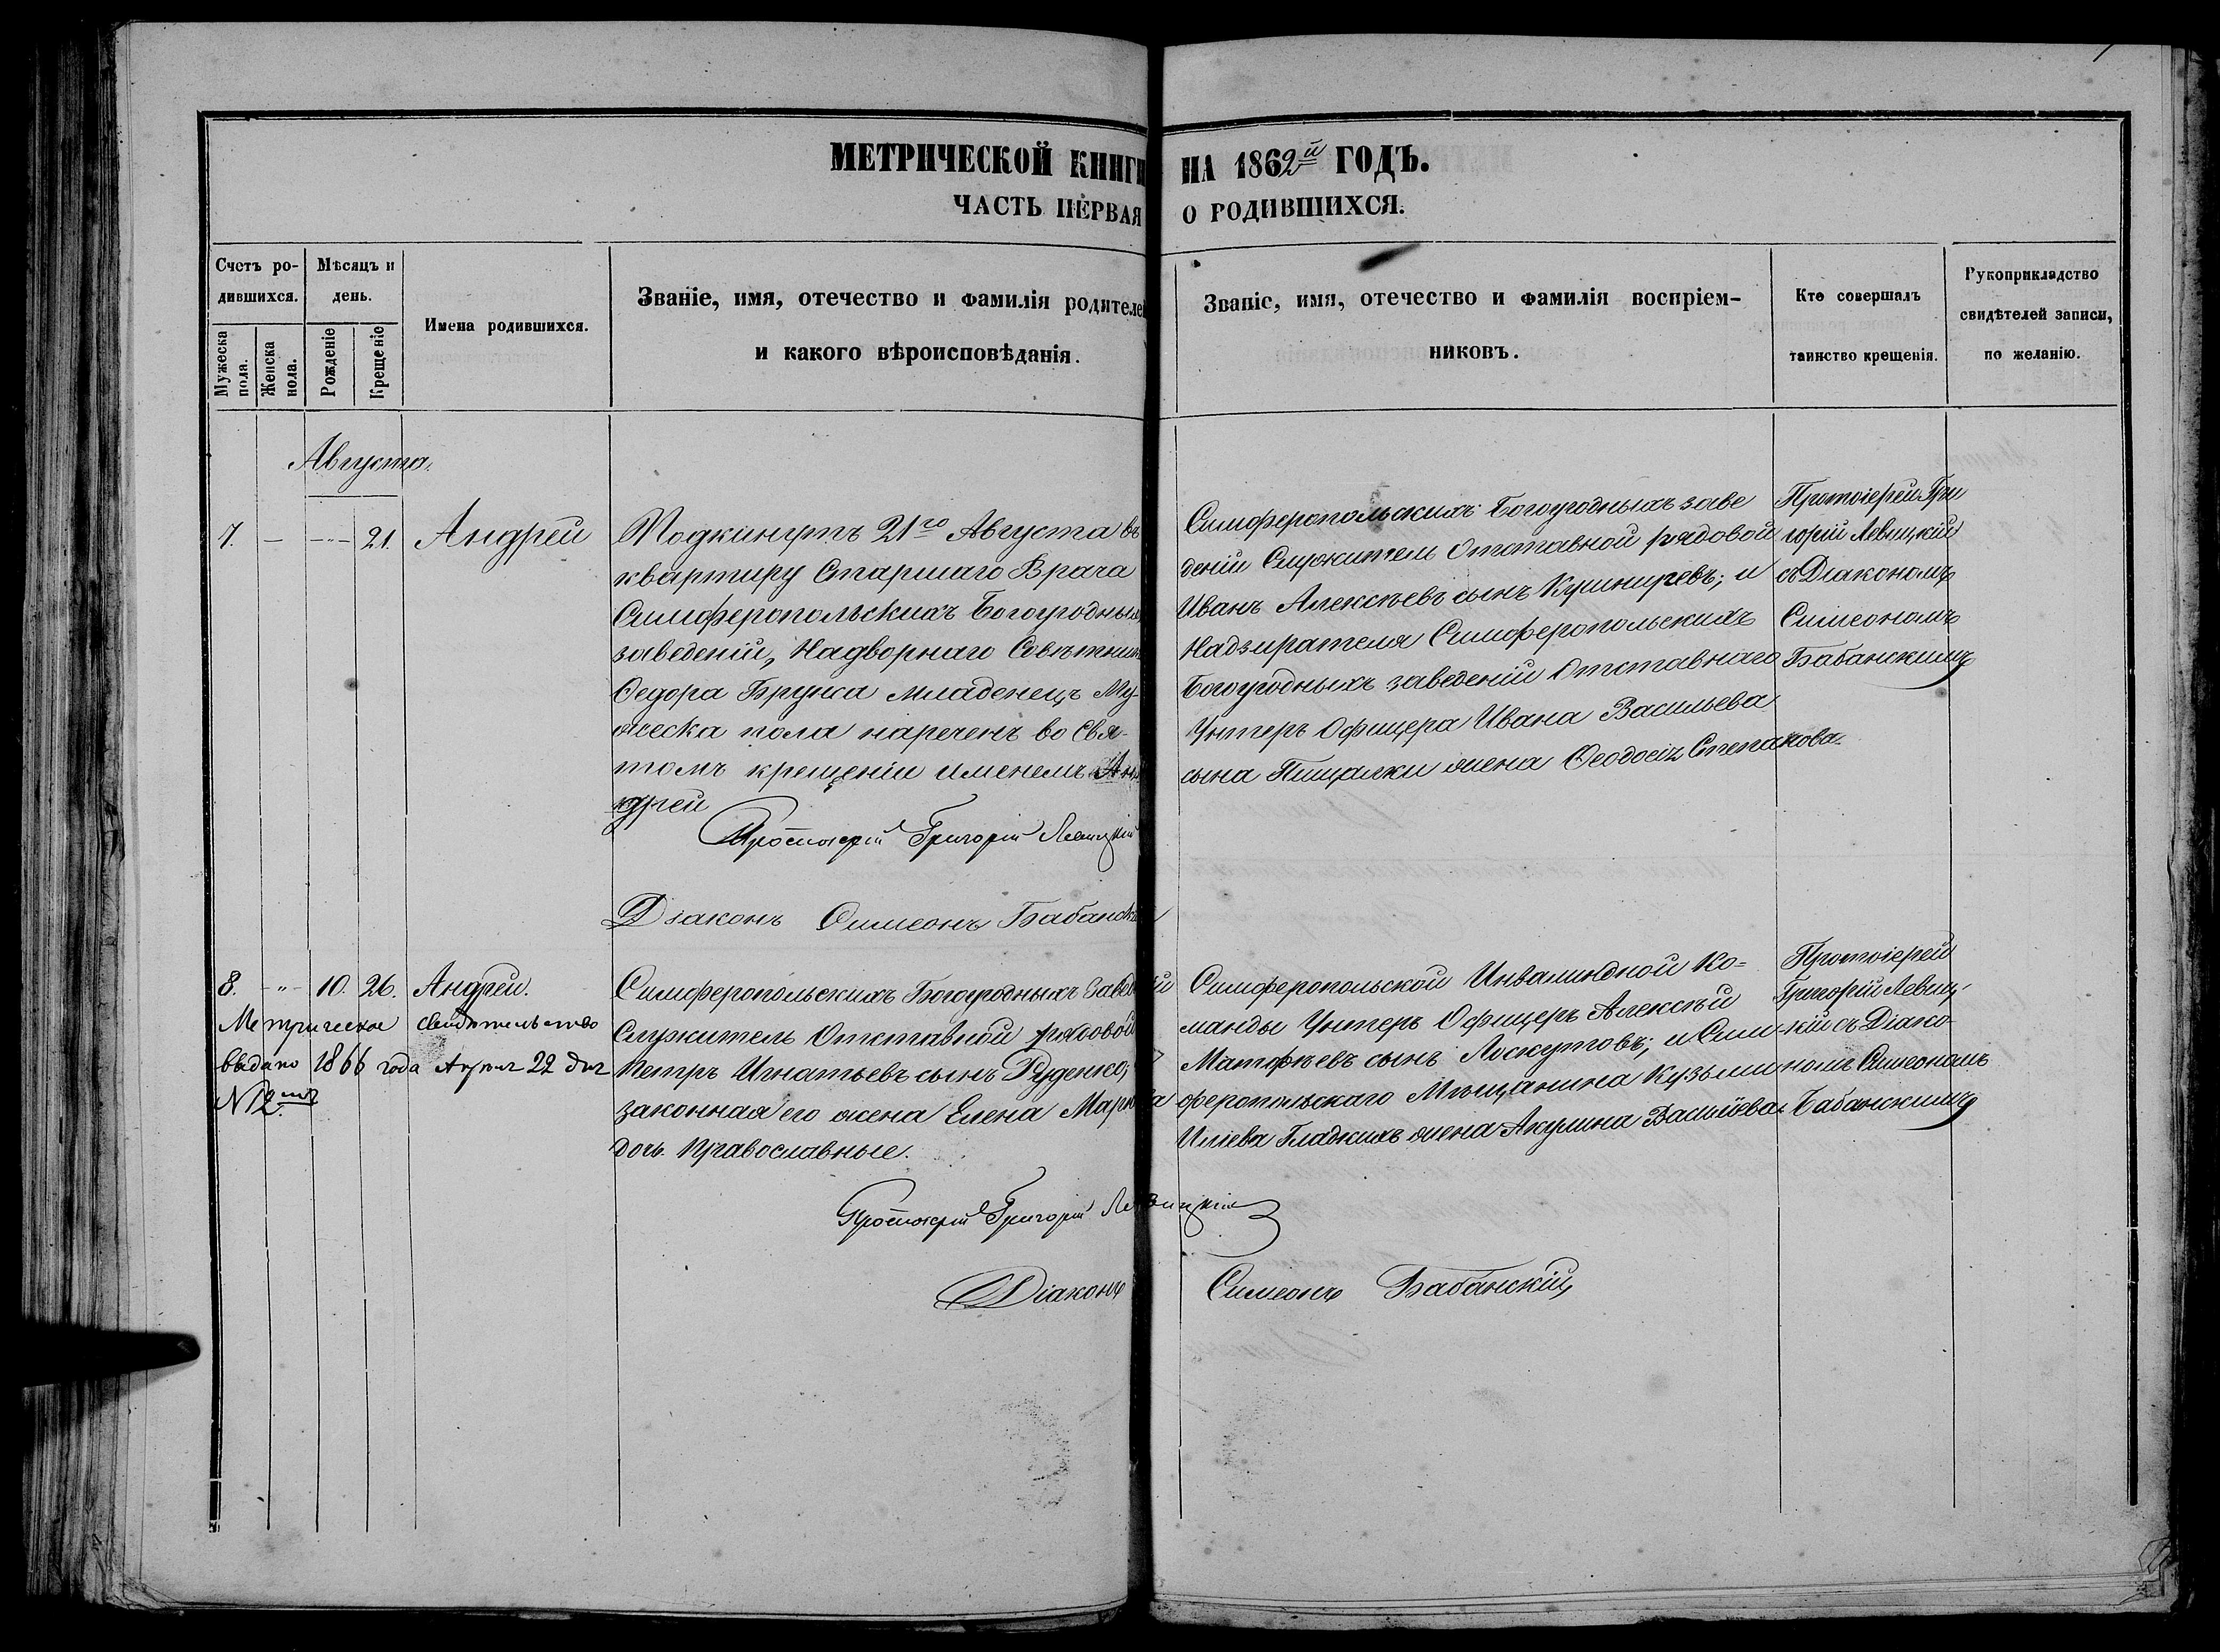 МЕТРИЧЕСКОЙ КНИГИ НА 1862й ГОДЪ.
ЧАСТЬ ПЕРВАЯ О РОДИВШИХСЯ.
Счетъ ро-
дившихся.
Мужеска
пола.
Женска
пола.
Мѣсяцъ и
день.
Рожденіе
Крещеніе
Имена родившихся.
Званіе, имя, отечество и фамилія родителей
и какого вѣроисповѣданія.
Званіе, имя, отечество и фамилія воспріем-
никовъ.
Кто совершалъ
таинство крещенія.
Рукоприкладство
свидѣтелей записи,
по желанію.
Августа.
7. — — 21. Андрей
Подкинутъ 21го Августа въ
квартиру Старшаго Врача
Симферопольскихъ Богоугодныхъ
заведеній, Надворнаго Совѣтника
Ѳедора Бруна младенецъ Му-
жеска пола нареченъ во Свя-
томъ крещеніи именемъ Ан
дрей
Протоіерей Григорій Левицкій
Діаконъ Симеонъ Бабанскій
Симферопольскихъ Богоугодныхъ заве
деній Служитель Отставной рядовой
Иванъ Алексѣевъ сынъ Кушниревъ; и
Надзирателя Симферопольскихъ
Богоугодныхъ заведеній Отставнаго
Унтеръ Офицера Ивана Васильева
сына Пищалки жена Ѳеодосія Степанова
Протоіерей Гри
горій Левицкій
съ Діакономъ
Симеономъ
Бабанскимъ
8. " 10. 26. Андрей.
Метрическое свидѣтельство
выдано 1866 года Апрѣля 22 дня
№ 12
Симферопольскихъ Богоугодныхъ Заведеній
Служитель Отставной рядовой
Петръ Игнатьевъ сынъ Руденко;
законная его жена Елена Маркова
дочь. Православные.
Протоіерей Григорій Левицкій
Діаконъ Симеонъ Бабанскій
Симферопольской Инвалидной Ко-
манды Унтеръ Офицеръ Алексѣй
Матфѣевъ сынъ Лоскутовъ; и Сим
феропольскаго Мѣщанина Кузьми
Иліева Гладкихъ жена Акулина Васильева
Протоіерей
Григорій Левиц-
кій съ Діако-
номъ Симеономъ
Бабанскимъ